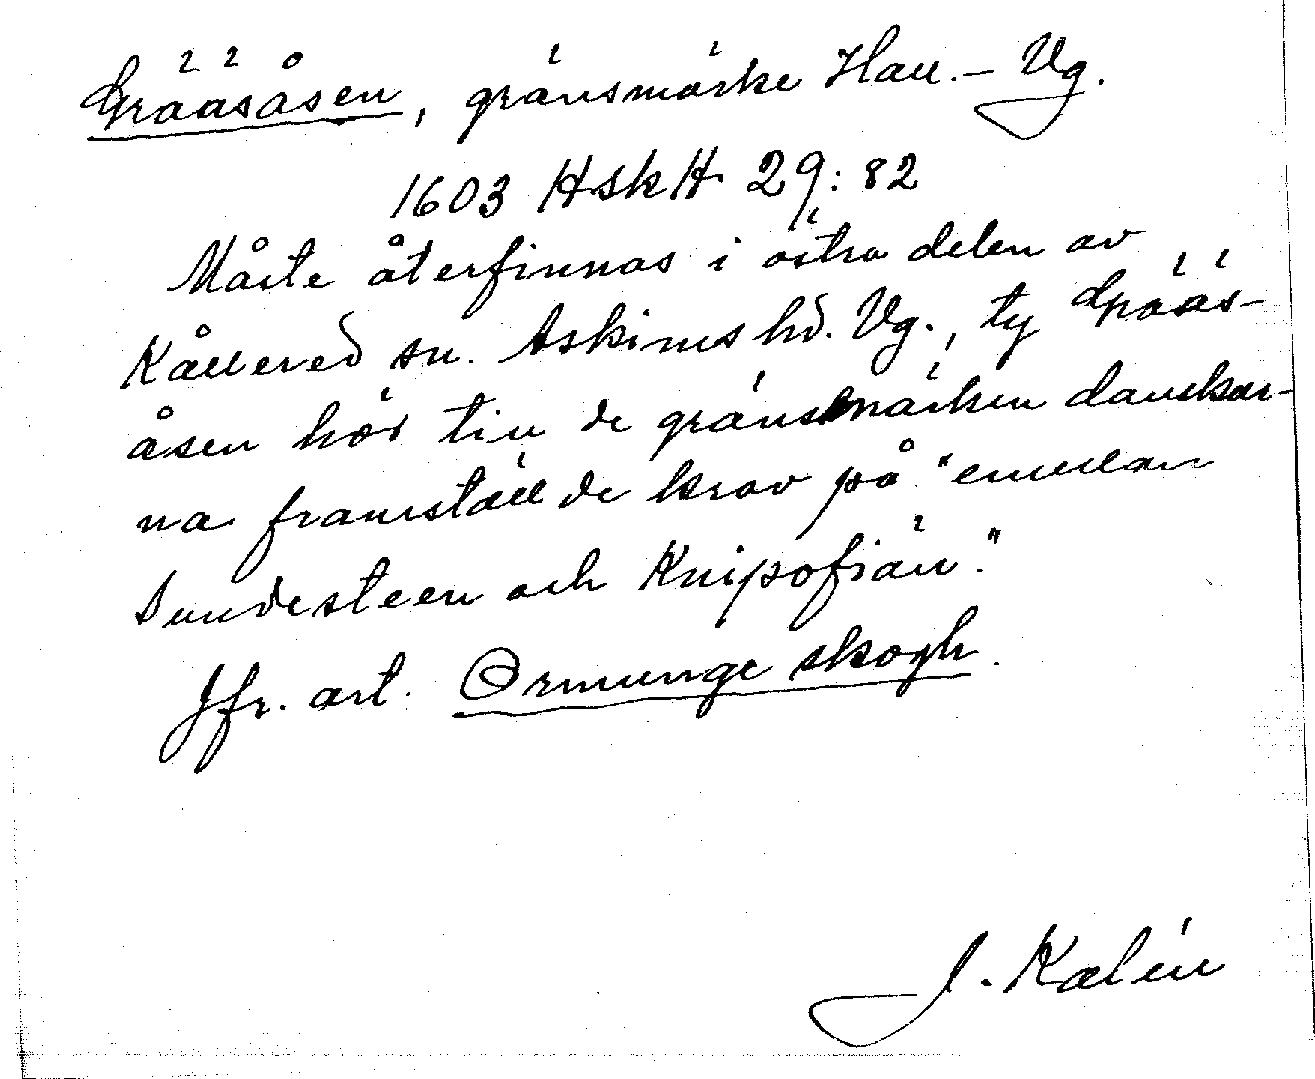 Grääsåsen, gränsmärke Hall. – Vg.
1603 HSkH 29:82
Måste återfinnas i östra delen av
Kållered sn. Askims hd. Vg., ty Grääs-
åsen hör till de gränsmärken danskar-
na framställde krav på "emellan
Sundesteen och Knipofiän."
Jfr. art. Ormunge skogh.
J. Kalén